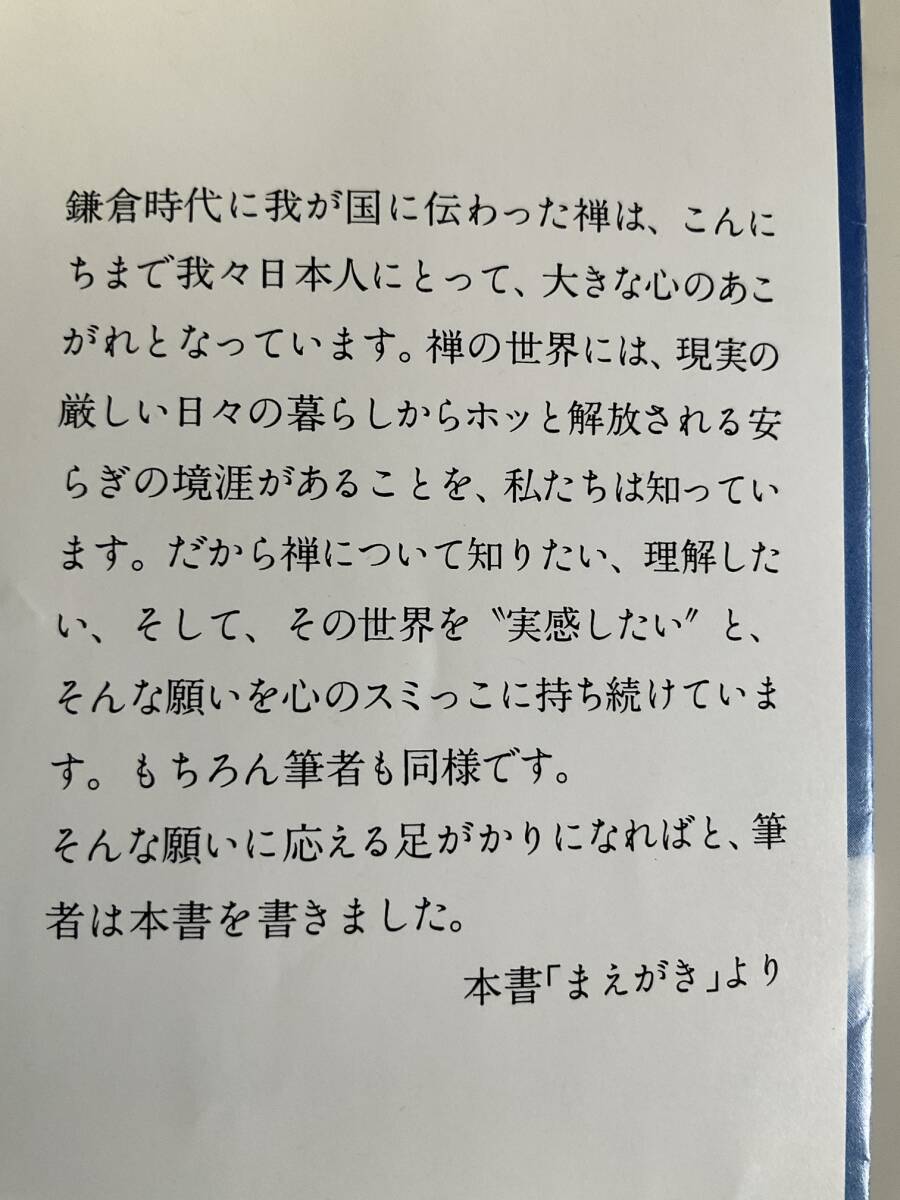 鎌倉時代に我が国に伝わった禅は、こんに
ちまで我々日本人にとって、大きな心のあこ
がれとなっています。禅の世界には、現実の
厳しい日々の暮らしからホッと解放される安
らぎの境涯があることを、私たちは知ってい
ます。だから禅について知りたい、理解した
い、そして、その世界を〝実感したい〟と、
そんな願いを心のスミっこに持ち続けていま
す。もちろん筆者も同様です。
そんな願いに応える足がかりになればと、筆
者は本書を書きました。
本書「まえがき」より